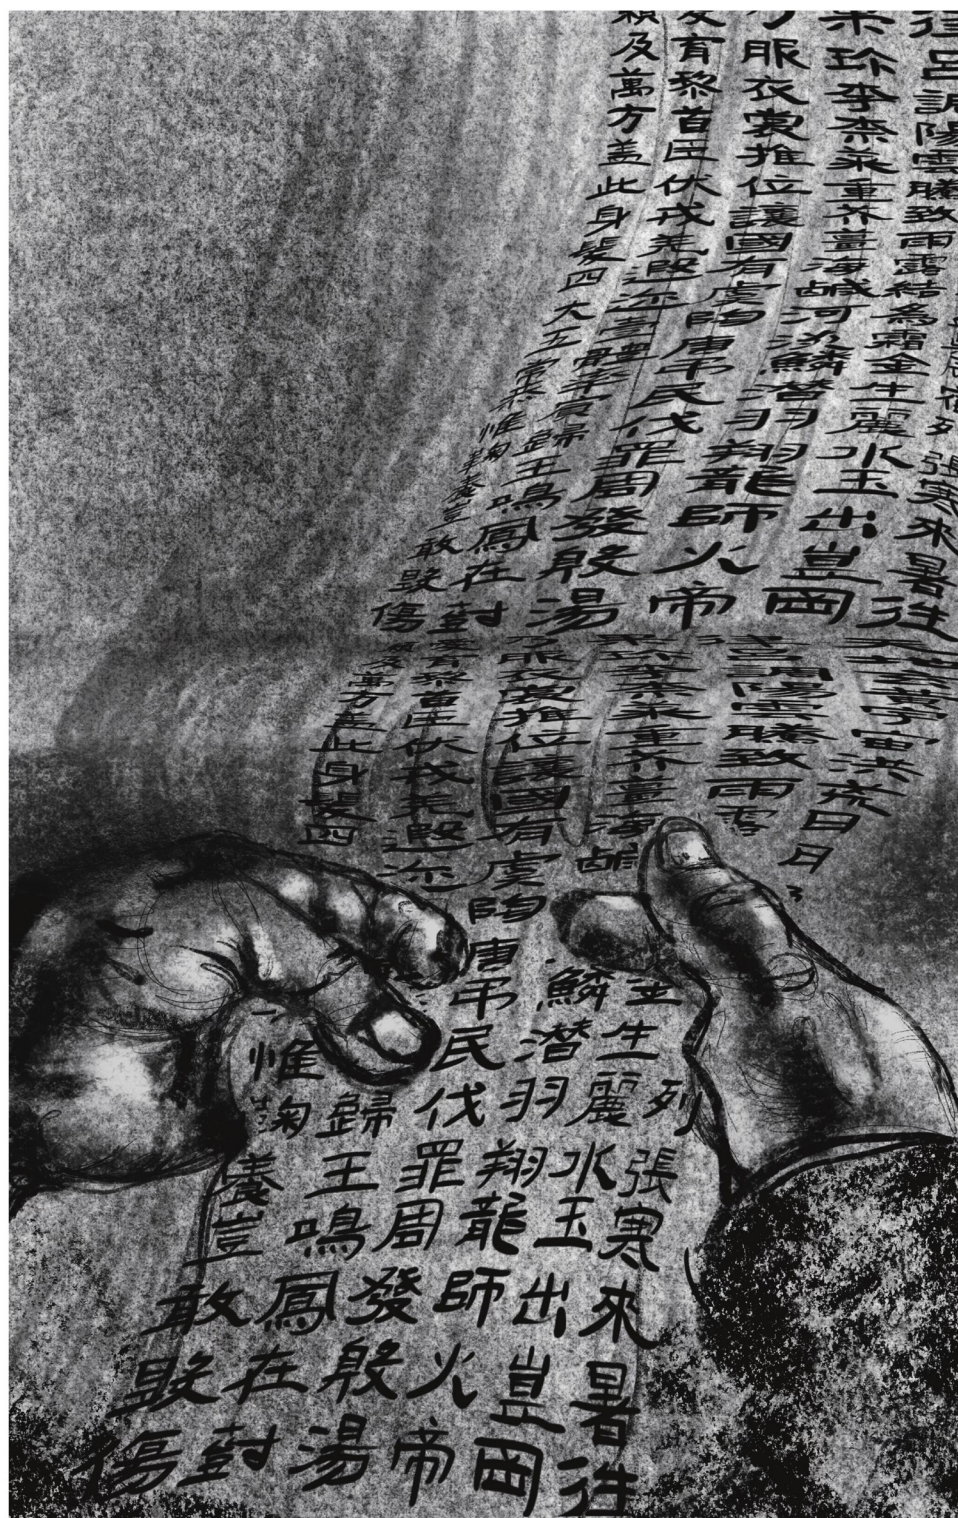 列張寒來暑往
呂調陽雲騰致雨露結為霜金生麗水玉出崑岡
珍李柰菜重芥薑海鹹河淡鱗潛羽翔龍師火帝
乃服衣裳推位讓國有虞陶唐弔民伐罪周發殷湯
育黎首臣伏戎羌遐邇壹體率賓歸王鳴鳳在尌
賴及萬方蓋此身髮四大五常恭惟鞠養豈敢毀傷
天地玄黃宇宙洪荒日月
呂調陽雲騰致雨露
珍李柰菜重芥薑海鹹
乃服衣裳推位讓國有虞陶唐弔民伐罪周發殷湯
愛育黎首臣伏戎羌遐邇
及萬方蓋此身髮四
列張寒來暑往
生麗水玉出崑岡
鱗潛羽翔龍師火帝
歸王鳴鳳在尌
惟鞠養豈敢毀傷